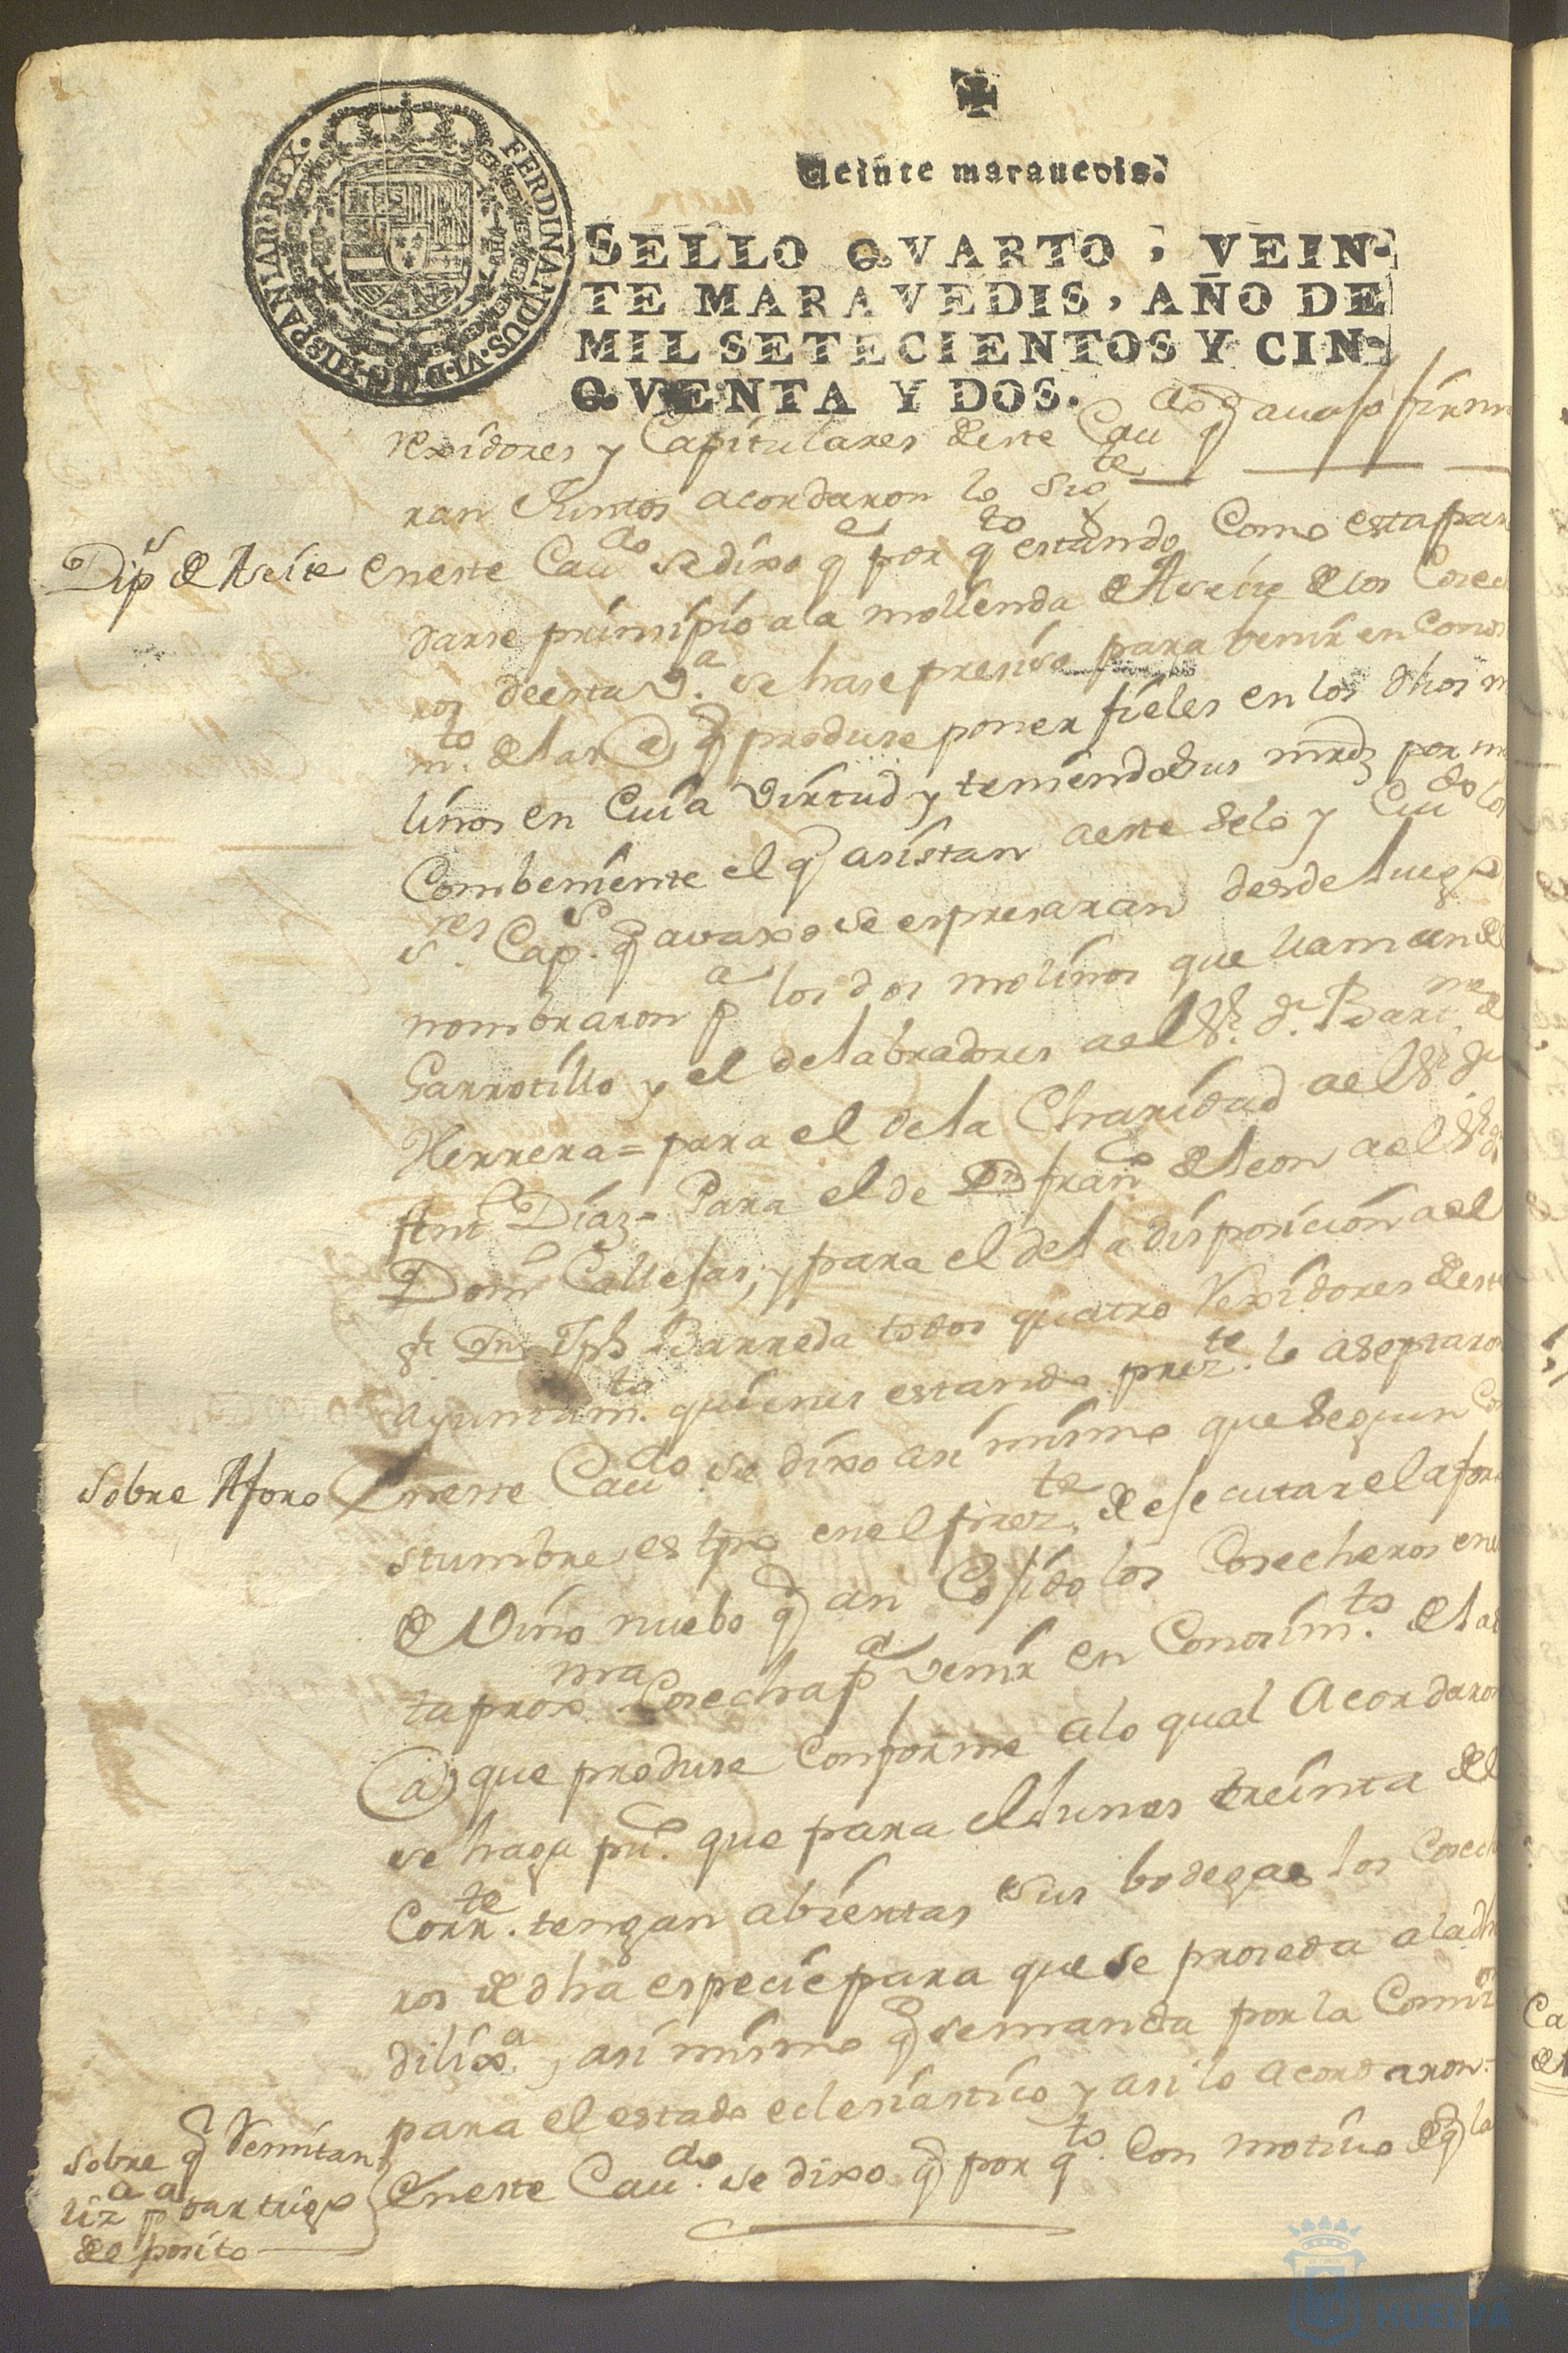 FERDINANDUS·VI·D·G·HISPANIAR·REX·
Veinte maravedis.
SELLO QVARTO, VEIN-
TE MARAVEDIS, AÑO DE
MIL SETECIENTOS Y CIN-
QVENTA Y DOS.
rexidores y Capitulares deste Cau^do q avaxo firma
ran Juntos acordaron lo Sig^te
Dip^s de Aseite
eneste Cau^do se dixo q^e por q^to estando Como esta par
darse prinsipio ala molienda de Aseite de los Cosec
ros deesta V.^a se hase presiso para venir en Conos
m^to. de las @ q produse poner fieles en los dhos m
linos en Cuia Virtud y teniendo Sus mrds por m
Combeniente el q asistan aeste Selo y Cui^do los
S^res. Cap^s. q avaxo se expresaran desde luego
nombraron p^a los dos molinos que llaman de
Garrotillo y el de labradores ael S^r. D^n. Bart^me. de
Herrera = para el de la Charidad ael S^r D^n
Ant^o Diaz = Para el de D^n fran^co de leon ael S^r D^n
Dom^o Callejas, y para el de la disposicion ael
S^r D^n Jph Barreda todos quatro Rexidores deste
ayuntam^to. quienes estando prez^te. lo aseptaron
Sobre Aforo
Eneste Cau^do. se dixo asi mismo que Segun Co
stumbre es tpo enel prez^te. de ejecutar el afor
de Vino nuebo q an Cojido los Cosecheros en
ta prox^ma Cosecha p^a venir en Conosim^to. de las
@ que produse Conforme alo qual Acordaron
se haga pu^co. que para el lunes treinta del
Corr^te. tengan abiertas Sus bodegas los Cosech
ros de dha especie para que se proseda a la dh
dilix^a., asi mismo q se manda por la Comi
para el estado eclesiastico y asi lo acordaron =
Sobre q Remitan
liz^a p^a dar trigo
de posito
Eneste Cau^do. se dixo q por q^to. Con motivo de q la
HUELVA